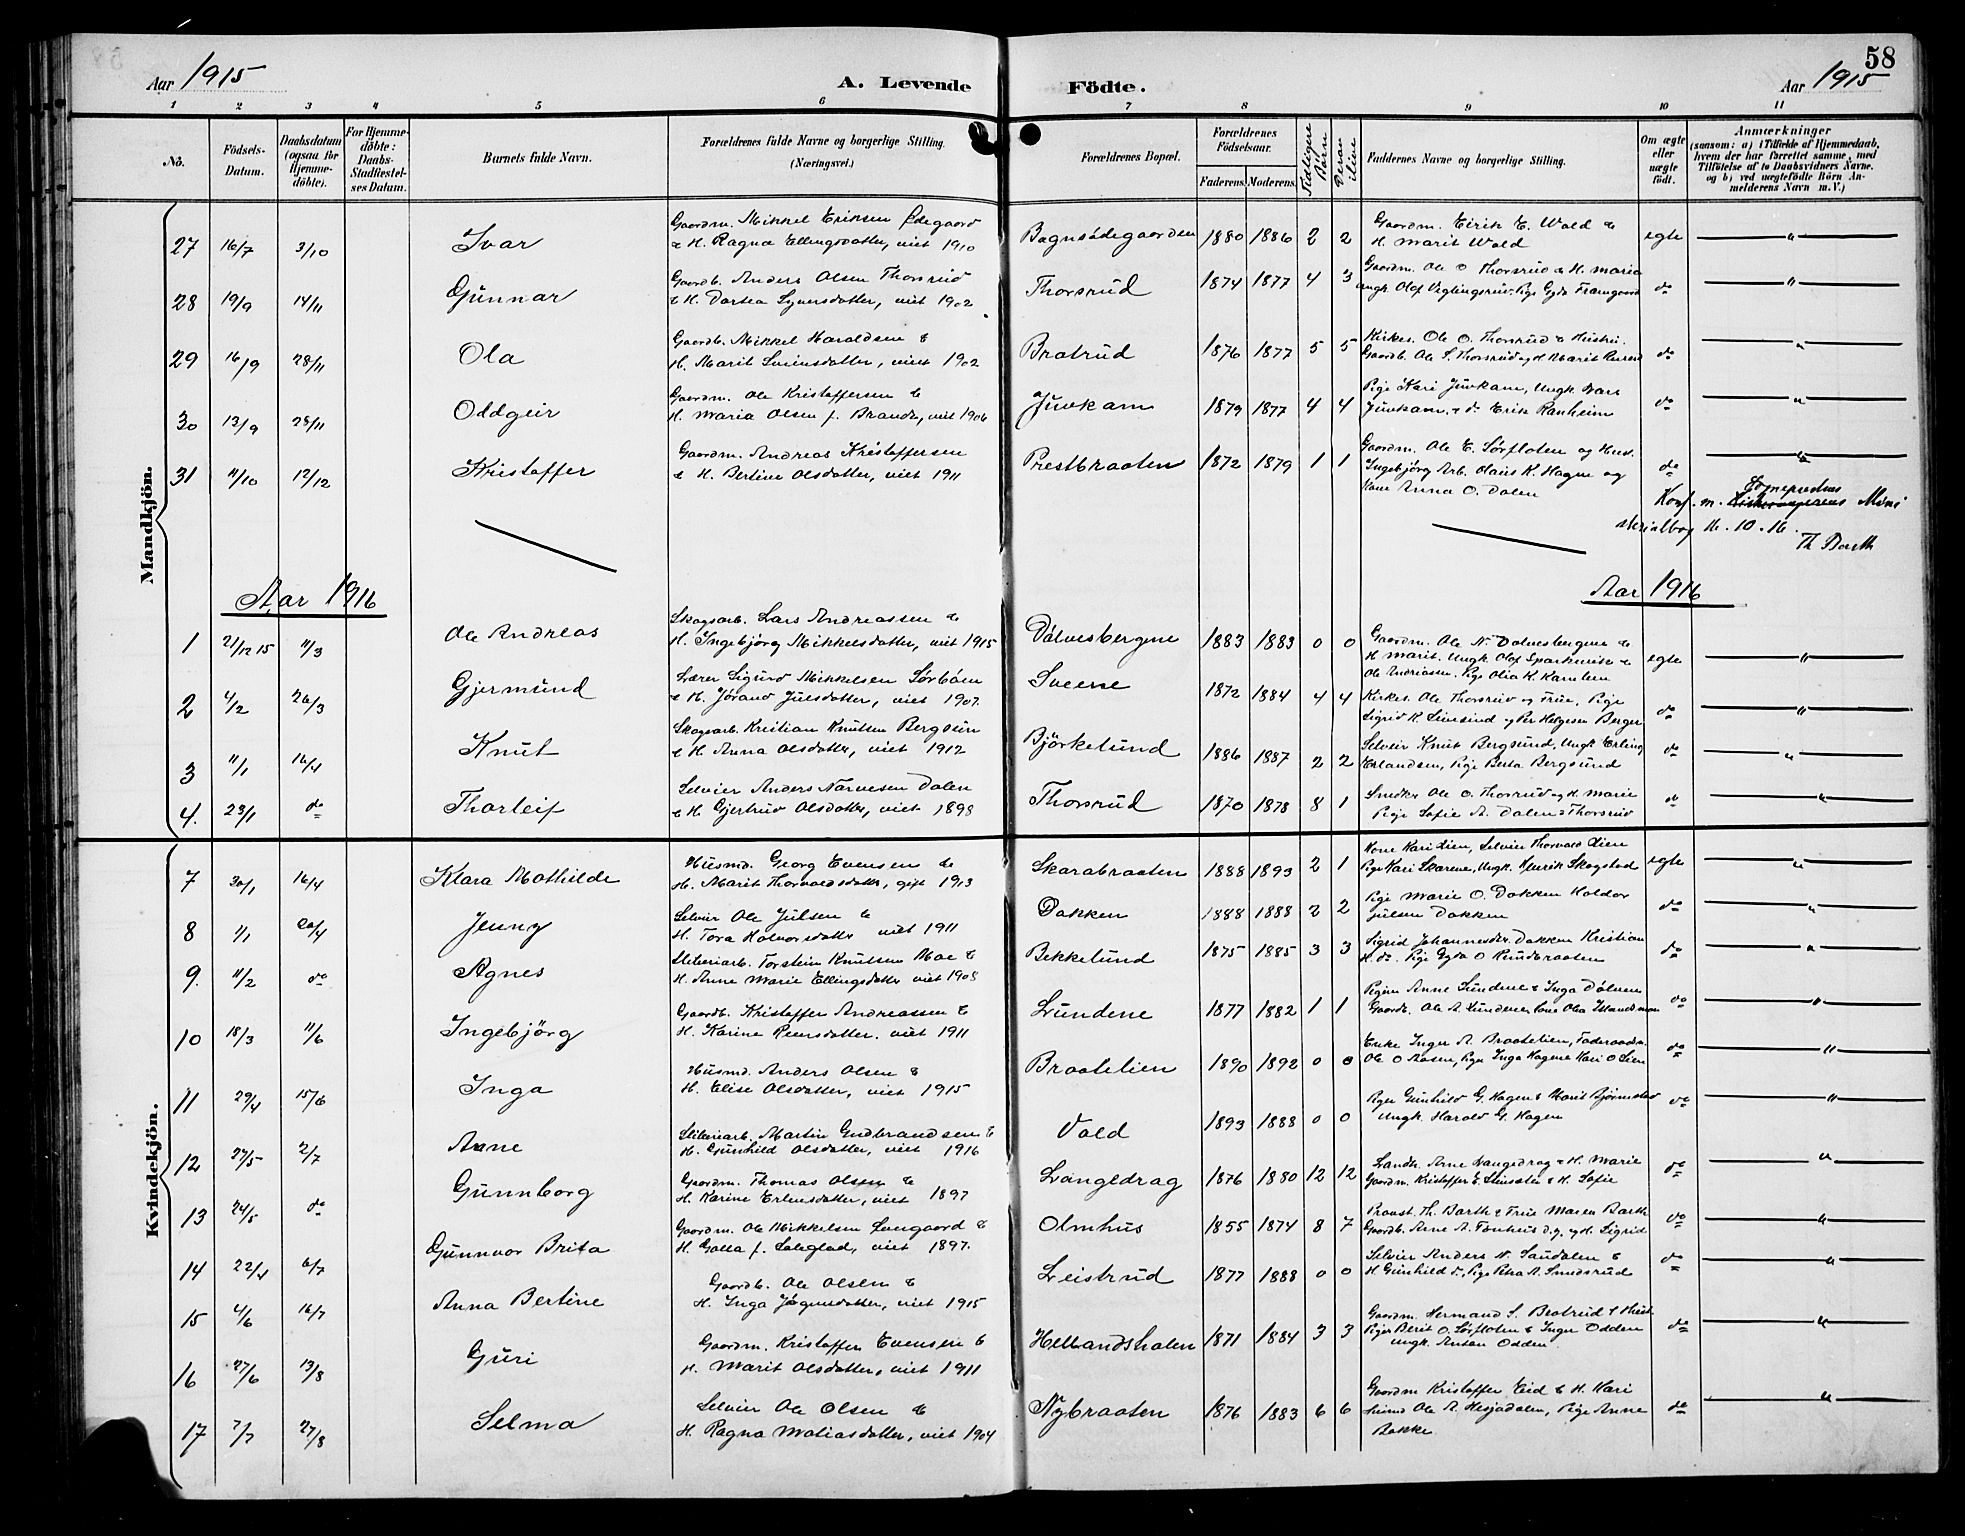 58
Aar 1915 A. Levende Födte. Aar 1915
1 2 3 4 5 6 7 8 9 10 11
No.
Födsels-
Datum.
Daabsdatum
(ogsaa for
Hjemme-
döbte).
For Hjemme-
döbte:
Daabs-
Stadfæstel-
ses Datum.
Barnets fulde Navn.
Forældrenes fulde Navne og borgerlige Stilling.
(Næringsvei.)
Forældrenes Bopæl.
Forældrenes
Födselsaar.
Faderens. Moderens.
Tidligere
Börn
Derav
ilive
Faddernes Navne og borgerlige Stilling.
Om ægte
eller
uægte
födt.
Anmærkninger
(saasom: a) i Tilfælde af Hjemmedaab,
hvem der har forrettet samme, med
Tilföielse af to Daabsvidners Navne.
og b) ved uægtefödte Börn An-
melderens Navn m. V.)
Mandkjön.
27 16/7 3/10 Ivar
Gaardm. Mikkel Eriksen Ödegaard
& H. Ragna Ellingsdatter, viet 1910
Bagnsödegaarden 1880 1886 2 2
Gaardm. Eirik E. Wold &
H. Marit Wold
egte "
28 19/9 14/11 Gunnar
Gaardb. Anders Olsen Thorsrud
& H. Dortea Syversdatter, viet 1902
Thorsrud 1874 1877 4 3
Gaardm. Ole O Thorsrud & H. Maria
Ungk. Olof Veglingsrud, Pige Gyda Framgaard
do "
29 16/9 28/11 Ola
Gaardb. Mikkel Haraldsen &
H. Marit Sveinsdatter, viet 1902
Bratrud 1876 1877 5 5
Kirkes. Ole O. Thorsrud & Hustru.
Gaardb. Ole S. Thorsrud og H Marit
do "
30 13/9 28/11 Oddgeir
Gaardm. Ole Kristoffersen &
H. Maria Olsen f. Brandt, viet 1906
Juvkam 1879 1877 4 4
Pige Kari Juvkam, Ungk. Ivar
Juvkam, & do Erik Ranheim
do "
31 11/10 12/12 Kristoffer
Gaardm. Andreas Kristoffersen
& H. Bertine Olsdatter, viet 1911
Prestbraaten 1872 1879 1 1
Gaardm. Ole E. Sørfloten og Hus.
Ingebjörg Arb. Olaus K. Hagen og
Kone Anna O. Dalen
do "
Konf. m. Sogneprednes Mini
sterialbog 16.10.16.
Th Barth
Aar 1916 Aar 1916
1 21/12 15 11/3 Ole Andreas
Skogsarb. Lars Andreassen &
H. Ingebjörg Mikkelsdatter, viet 1915
Dölvesbergene 1883 1883 0 0
Gaardm. Ole N. Dolvesbergene &
H Marit. Ungk. Olof &
Ole Andreassen. Pige Olia K.
egte "
2 4/2 26/3 Gjermund
Lærer Sigurd Mikkelsen Sørböen
& H. Jorand Julsdatter, viet 1907.
Sveene 1872 1884 4 4
Kirkes. Ole Thorsrud og Frue, Pige
Sigrid H. og Per Helgesen Berger
do "
3 11/1 16/4 Knut
Skogsarb. Kristian Knutsen Bergsun
& H. Anna Olsdatter, viet 1912
Björkelund 1886 1887 2 2
Selveier Knut Bergsund, Ungk. Erling
Erlandsen, Pige Berta Bergsund
do "
4. 23/1 do Thorleif
Selveier Anders Narvesen Dalen
& H. Gjertrud Olsdatter, viet 1898
Thorsrud 1870 1878 8 1
Smeds. Ole O. Thorsrud og H. Marie
Pige Sofie A. Dalen & Thorsrud
do "
Kvindekjön.
7 30/1 16/4 Klara Mathilde
Husmd. Georg Evensen &
H. Marit Thorvaldsdatter, gift 1913
Skarabraaten 1888 1893 2 1
Kone Kari Lien, Selveier Thorvald Lien
Pige Kari Skarene, Ungk. Henrik Skogstad
egte "
8 1/1 20/4 Jenny
Selveier Ole Julsen &
H. Tora Halvorsdatter viet 1911
Dokken 1888 1888 2 2
Pige Marie O. Dokken Haldor
Julsen Dokken
do "
9. 11/2 do Agnes
Sliberiarb. Torstein Knutsen Moe &
H. Anne Marie Ellingsdatter viet 1908
Bekkelund 1875 1885 3 3
Sigrid Johannesdr. Dokken Kristian
K. do. Pige Gyda O Rundbraaten
do "
10 18/3 11/6 Ingebjörg
Gaardb. Kristoffer Andreassen &
H. Karine Reiersdatter. viet 1911
Lundene 1877 1882 1 1
Pigen Anne Lundene & Inga Dölven
Gaardb. Ole A. Lundene Kone Olea Islandsmoen
do "
11 29/4 15/6 Inga
Husmd. Anders Olsen &
H. Elise Olsdatter, viet 1915
Braatelien 1890 1892 0 0
Enke Inger A. Braatelien, Føderaadm.
Ole O Aasen, Pige Inga Hagene Kari O Lien
do "
12 27/5 2/7 Anne
Sliberiarb. Martin Gudbrandsen &
H. Gunhild Olsdatter, viet 1916
Vold 1893 1888 0 0
Piger Gunhild G. Hagen & Marit Björnstad
Ungk. Harald G. Hagen
do "
13 24/5 do Gunnborg
Gaardm. Thomas Olsen &
H. Karine Erlensdatter, viet 1897
Langedrag 1876 1880 12 12
Landh. Arne Langedrag & H. Marie
Gaardm. Kristoffer E. & H. Sofie
do "
14 22/4 6/7 Gunnvor Brita
Gaardm. Ole Mikkelsen &
H. Golla f. viet 1897.
Olmhus 1855 1874 8 7
Provst. Th. Barth & Frue Maren Barth
Gaardb. Arne A. Tonhus d.y. og H. Sigrid
do "
15 4/6 16/7 Anna Bertine
Gaardb. Ole Olsen &
H. Inga Jögensdatter, viet 1915
Leistrud 1877 1888 0 0
Selveier Anders N. Saudalen &
H Gunhild do, Pige Petra A. Smedsrud
do "
16 27/6 13/8 Guri
Gaardm. Kristoffer Evensen &
H. Marit Olsdatter, viet 1911
Hellandshalen 1871 1884 3 3
Gaardm. Hermand S. Bratrud & Hust.
Piger Berit O. Sørfloten & Inger Odden
Ungk. Anton Odden
do "
17 7/7 27/8 Selma
Selveier Ole Olsen &
H. Ragna Matiasdatter, viet 1904
Nybraaten 1876 1883 6 6
Gaardm Kristoffer Eid & H. Kari
Ole A. Hesjadalen, Pige Anne
Bakke
do "